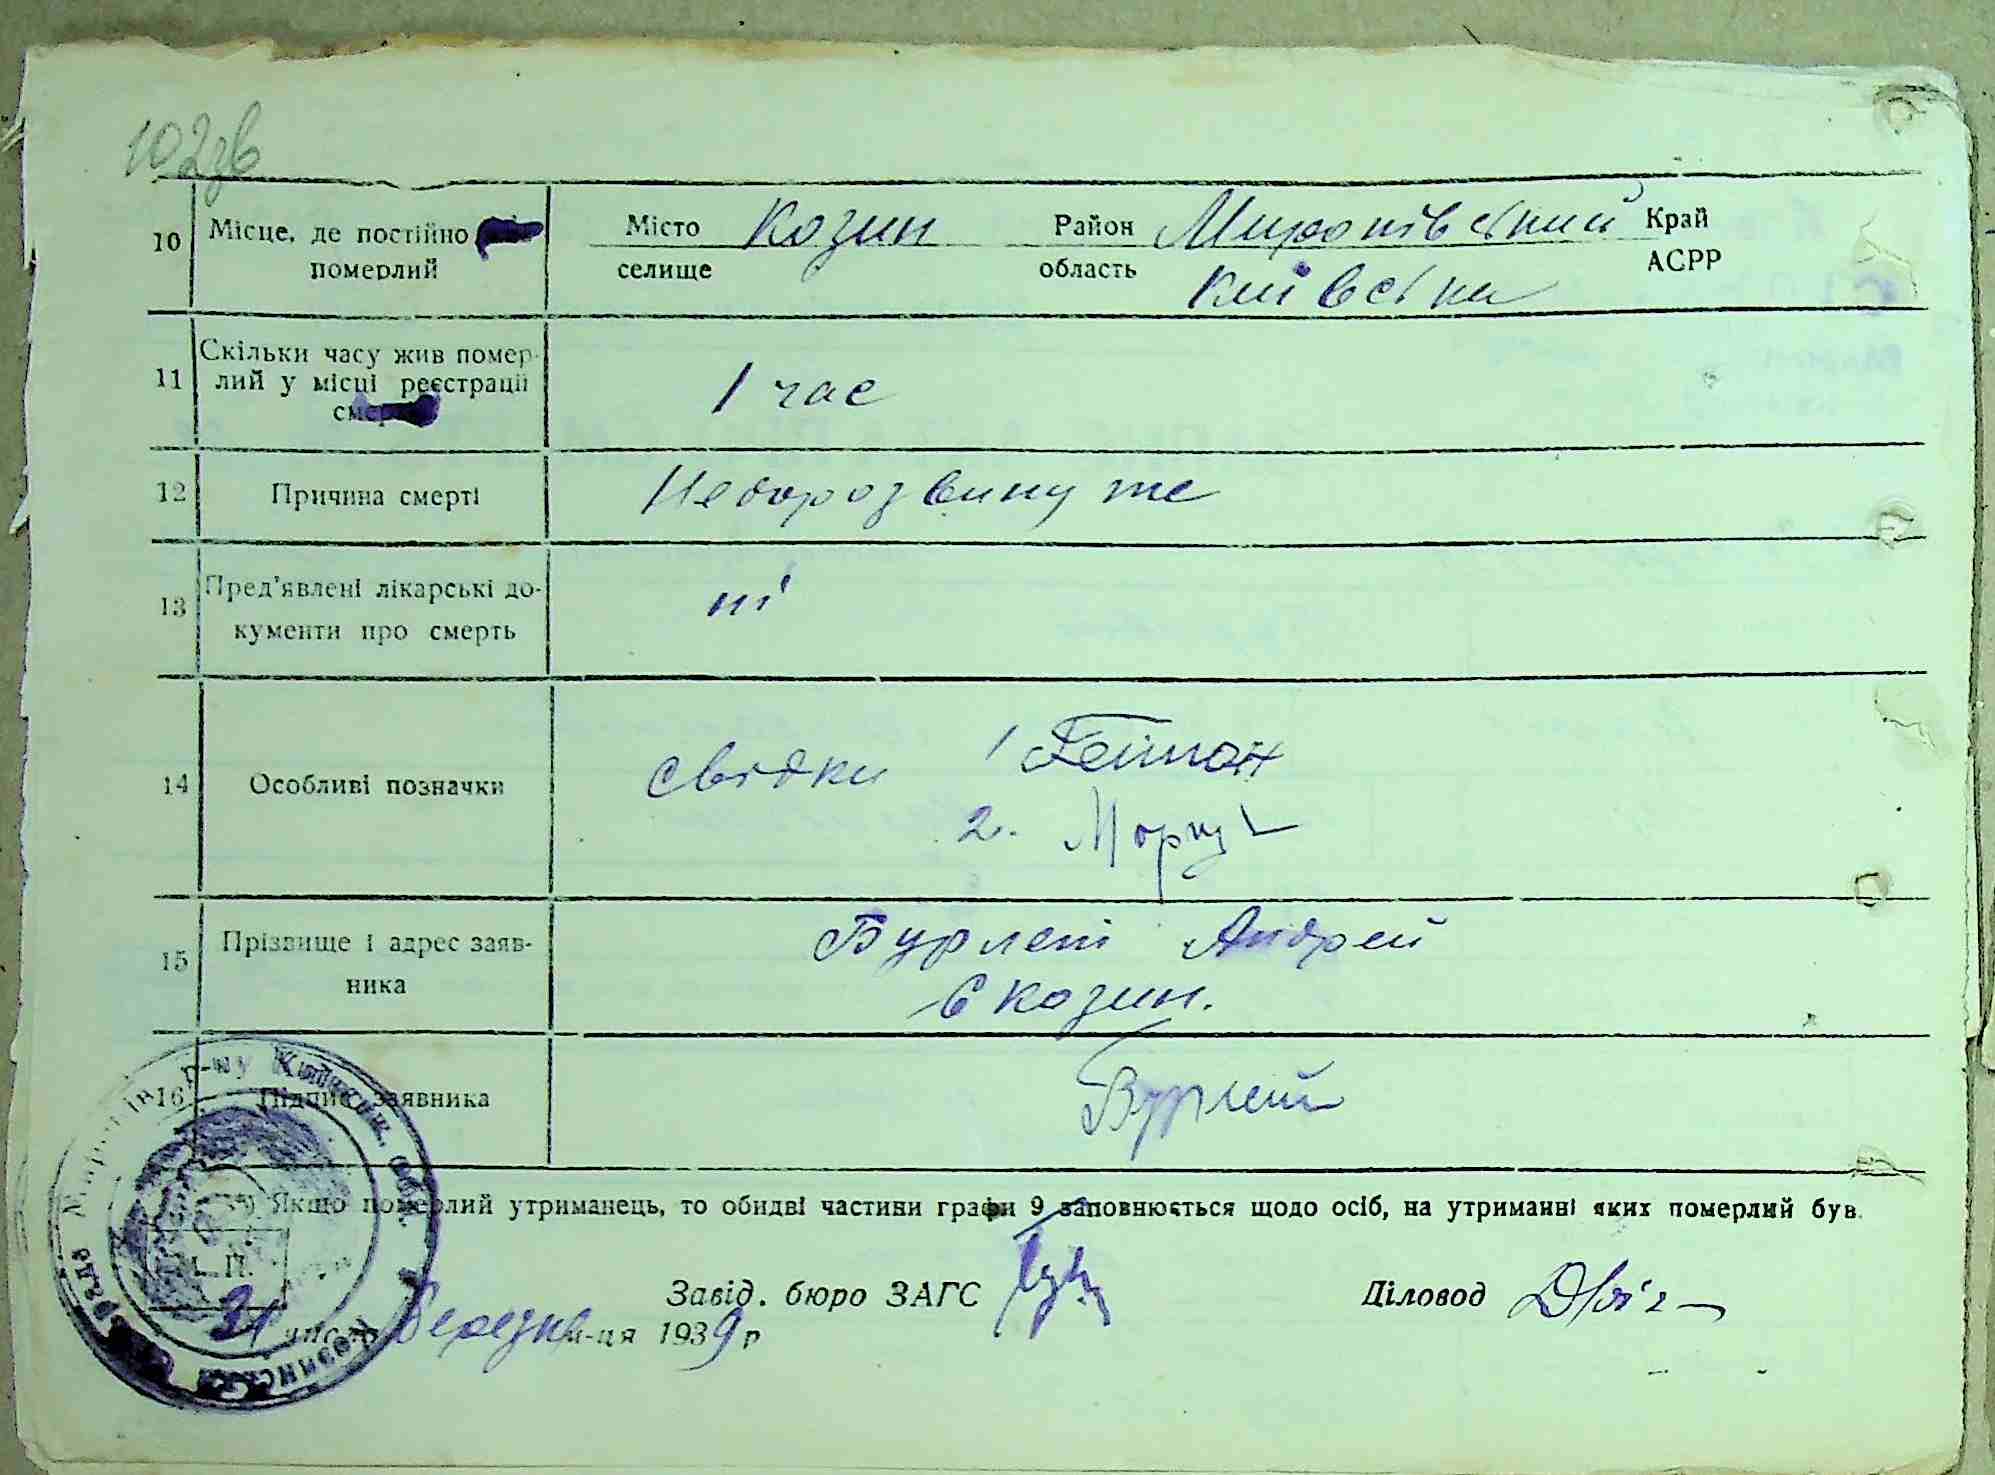 102зв
10 Місце, де постійно
померлий
Місто Козин Район Миронівський Край
селище область Київська АСРР
11 Скільки часу жив помер-
лий у місці реєстрації
смерті
1 час
12 Причина смерті Недорозвинуте
13 Пред'явлені лікарські до-
кументи про смерть
ні
14 Особливі позначки
свідки 1
2.
15 Прізвище і адрес заяв-
ника
Бурлені Андрей
с Козин.
16 Підпис заявника
*) Якщо померлий утриманець, то обидві частини графи 9 заповнюється щодо осіб, на утриманні яких померлий був.
М. П.
Завід. бюро ЗАГС Діловод
21 число березня м-ця 1939 р